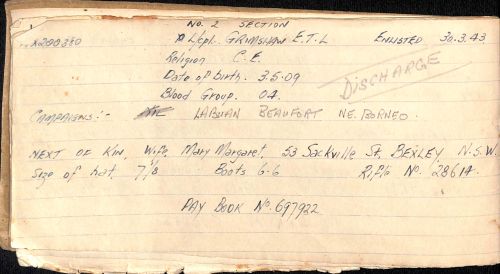 No. 2 SECTION
L/cpl. GRIMSHAW E.T.L ENLISTED 30.3.43.
Religion C.E.
Date of birth. 3.5.09
DISCHARGE
Blood Group. O4.
CAMPAIGNS:- LABUAN BEAUFORT NE. BORNEO.
NEXT OF KIN, Wife, Mary Margaret, 53 Sackville St, BEXLEY, N.S.W.
Size of hat, 7 1/8 Boots 6-6 Rifle No. 28614.
PAY BOOK No. 697922